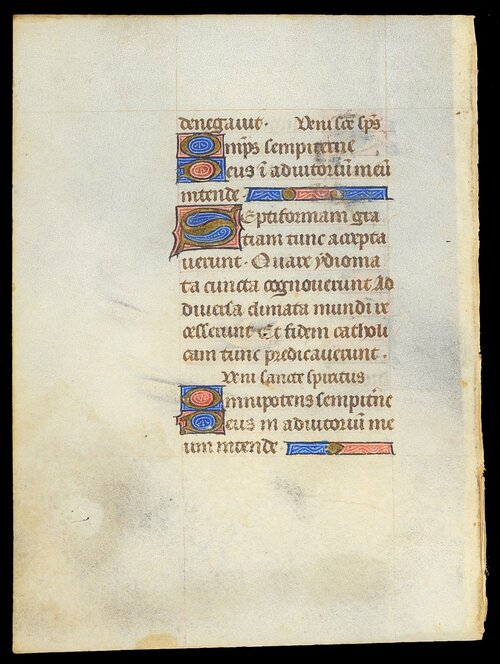 denegauit. Veni scē sps
Omps sempiterne
Deus ī adiutoriū meū
intende
Septiformam gra
tiam tunc accepta
uerunt. Quare ydioma
ta cuncta cognouerunt Ad
diuersa climata mundi re
cesserunt Et fidem catholi
cam tunc predicauerunt.
Veni sancte spiritus
Omnipotens sempitne
Deus in adiutoriū me
um intende